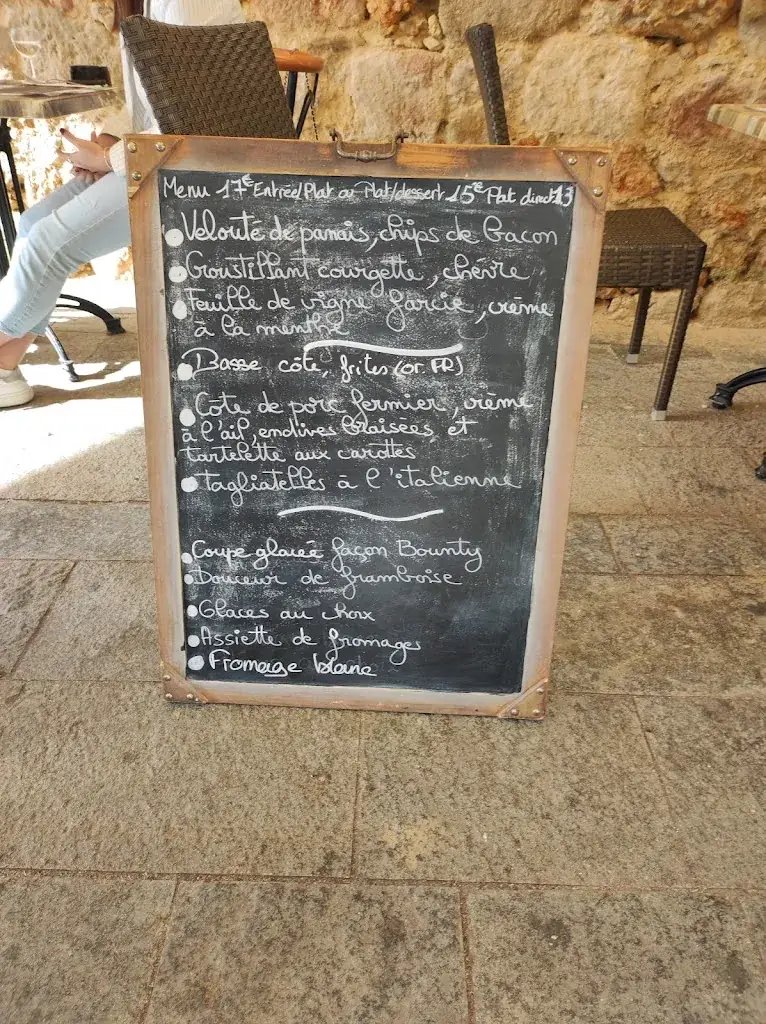 Menu 17€ Entrée/Plat ou Plat/dessert 15€ Plat direct 13
Velouté de panais, chips de bacon
Croustillant courgette, chèvre
Feuille de vigne farcie, crème
à la menthe
Basse côte, frites (or. FR)
Côte de porc fermier, crème
à l'ail, endives braisées, et
tartelette aux carottes
tagliatelles à l'italienne
Coupe glacée façon Bounty
Douceur de framboise
Glaces au choix
Assiette de fromages
Fromage blanc